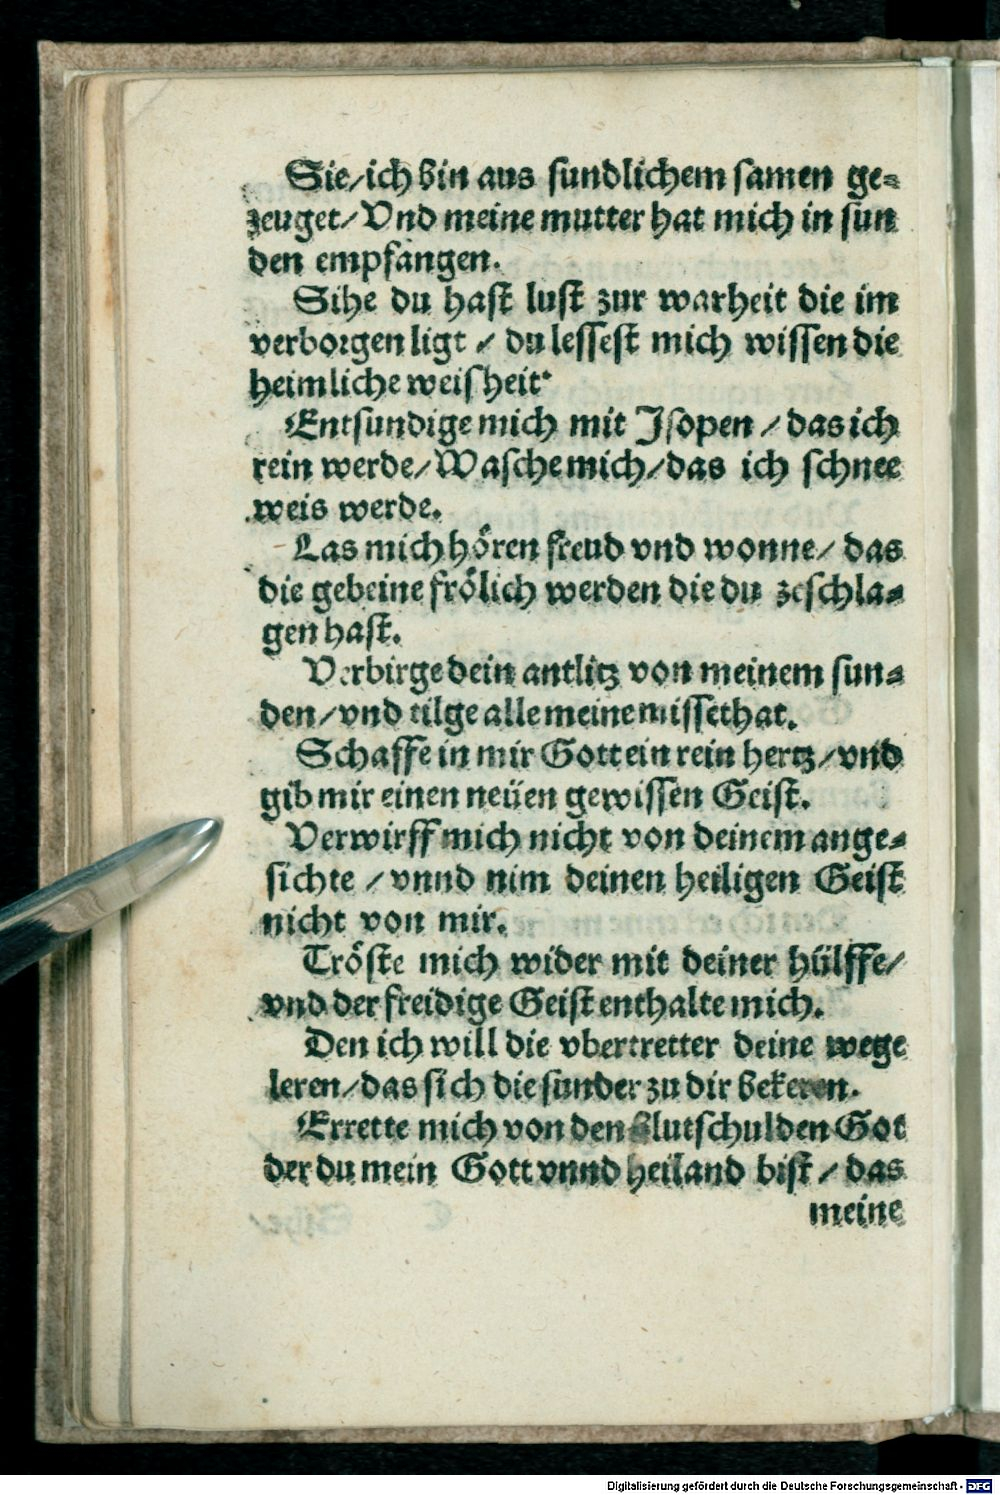 Sie/ich bin aus sundlichem samen ge-
zeuget/Vnd meine mutter hat mich in sun
den empfangen.
Sihe du hast lust zur warheit die im
verborgen ligt / du lessest mich wissen die
heimliche weisheit.
Entsundige mich mit Jsopen / das ich
rein werde/Wasche mich/das ich schnee
weis werde.
Las mich hören freud vnd wonne/ das
die gebeine frölich werden die du zeschla-
gen hast.
Verbirge dein antlitz von meinem sun-
den/vnd tilge alle meine missethat.
Schaffe in mir Gott ein rein hertz/vnd
gib mir einen neüen gewissen Geist.
Verwirff mich nicht von deinem ange-
sichte /vnnd nim deinen heiligen Geist
nicht von mir.
Tröste mich wider mit deiner hülffe/
vnd der freidige Geist enthalte mich.
Den ich will die vbertretter deine wege
leren/das sich die sunder zu dir bekeren.
Errette mich von den Blutschulden Got
der du mein Gott vnnd heiland bist/das
meine
Digitalisierung gefördert durch die Deutsche Forschungsgemeinschaft - DFG